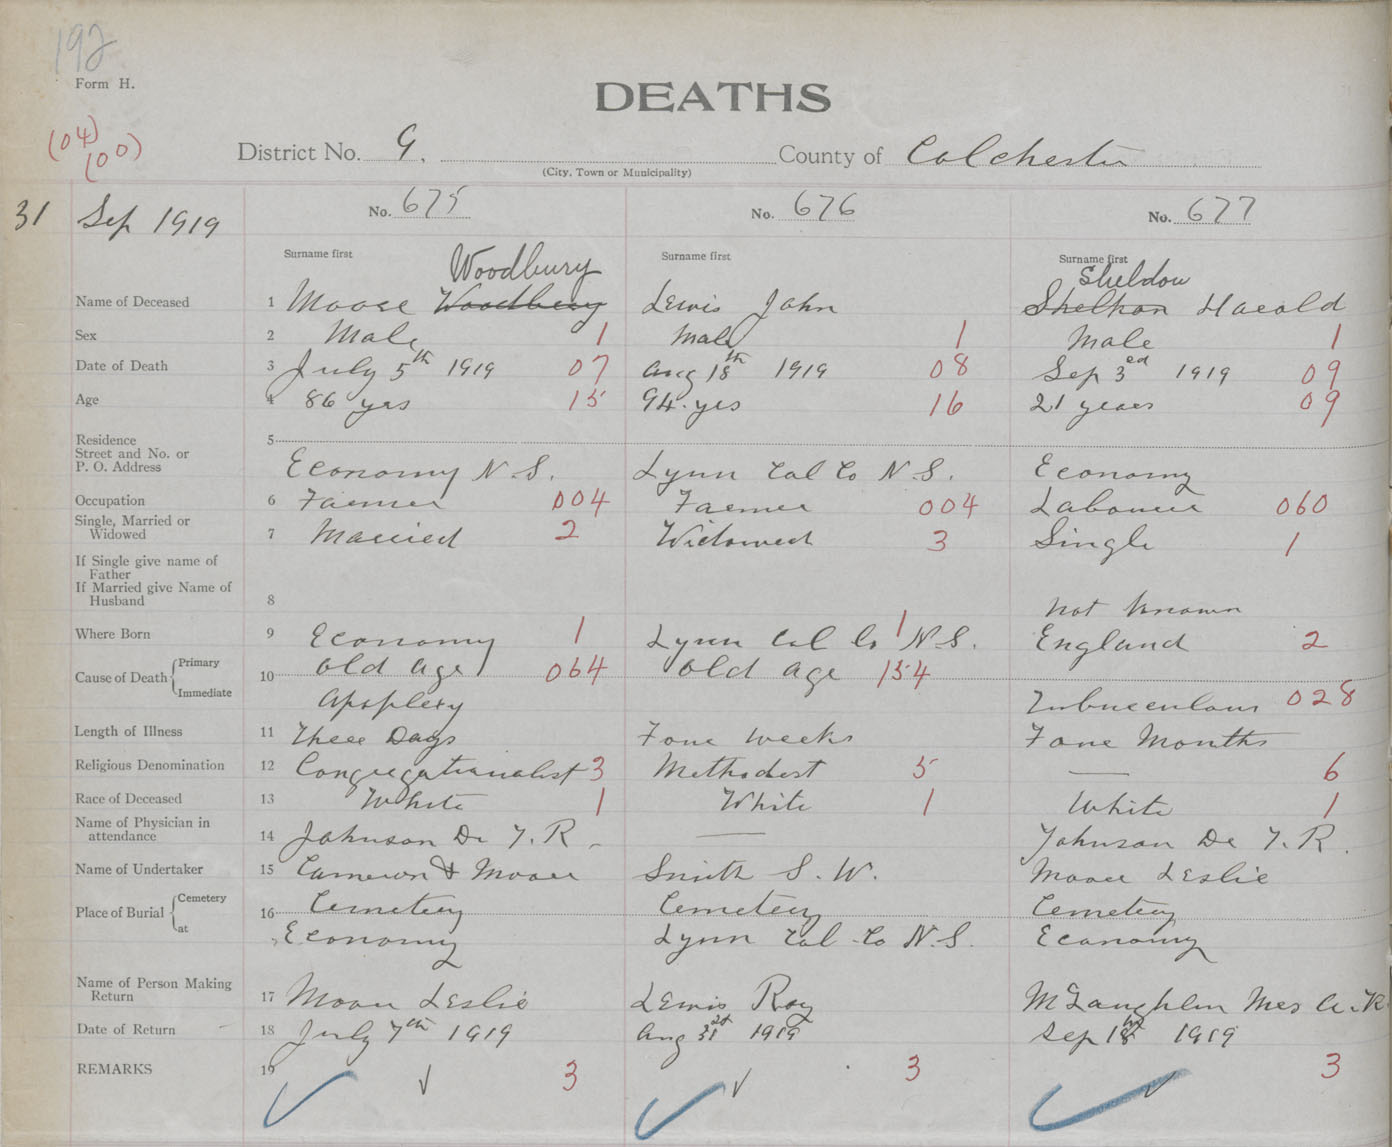 192
Form H.
DEATHS
(04)
(00)
District No. 9. County of Colchester
(City, Town or Municipality)
31 Sep 1919 No. 675 No. 676 No. 677
Surname first Surname first Surname first
Woodbury Sheldow
Name of Deceased 1 Moore Woodbery Lewis John Shelkon Harold
Sex 2 Male 1 Male 1 Male 1
Date of Death 3 July 5th 1919 07 Aug 18th 1919 08 Sep 3rd 1919 09
Age 4 86 yrs 15 94 yrs 16 21 years 09
Residence 5
Street and No. or
P. O. Address Economy N.S. Lynn Col Co N.S. Economy
Occupation 6 Farmer 004 Farmer 004 Labourer 060
Single, Married or
Widowed 7 Married 2 Widowed 3 Single 1
If Single give name of
Father
If Married give Name of
Husband 8 not known
Where Born 9 Economy 1 Lynn Col Co 1 N.S. England 2
Cause of Death Primary 10 Old Age 064 Old Age 154
Immediate Apoplexy Tuberculous 028
Length of Illness 11 Three Days Four weeks Four Months
Religious Denomination 12 Congregationalist 3 Methodist 5 — 6
Race of Deceased 13 White 1 White 1 White 1
Name of Physician in
attendance 14 Johnson Dr T. R. — Johnson Dr T. R.
Name of Undertaker 15 Cameron & Moore Smith S. W. Moore Leslie
Place of Burial Cemetery 16 Cemetery Cemetery Cemetery
at Economy Lynn Col Co N.S. Economy
Name of Person Making
Return 17 Moore Leslie Lewis Roy McLaughlin Mrs A. R
Date of Return 18 July 7th 1919 Aug 31st 1919 Sep 18th 1919
REMARKS 19 3 3 3